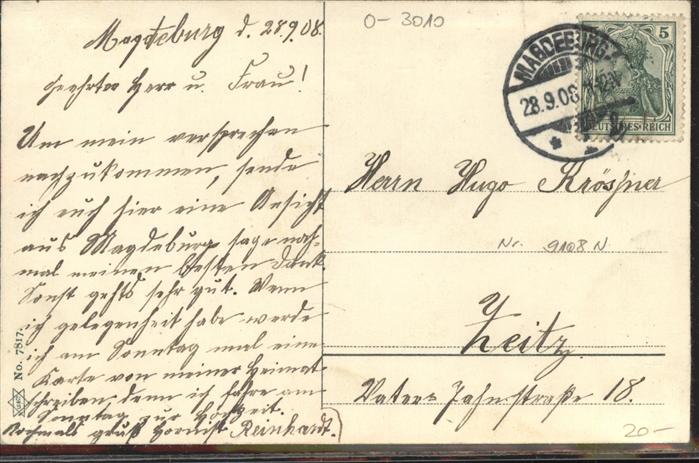 Magdeburg d. 28.9.08.
Geehrter Herr u. Frau!
Um mein versprechen
nachzukommen, sende
ich euch hier eine Ansicht
aus Magdeburg sage noch-
mal meinen besten Dank.
Sonst gehts sehr gut. Wenn
ich gelegenheit habe werde
ich am Sonntag mal eine
Karte von meiner Heimat
schreiben, denn ich fahre am
Sonntag zur Hochzeit.
Nochmals gruß Hornist Reinhardt.
No. 7817.
0-3010
MAGDEBURG
28.9.08
5
DEUTSCHES REICH
Herrn Hugo Krößner
Nr. 9108 N
Zeitz
Vater-Jahnstraße 18.
20-